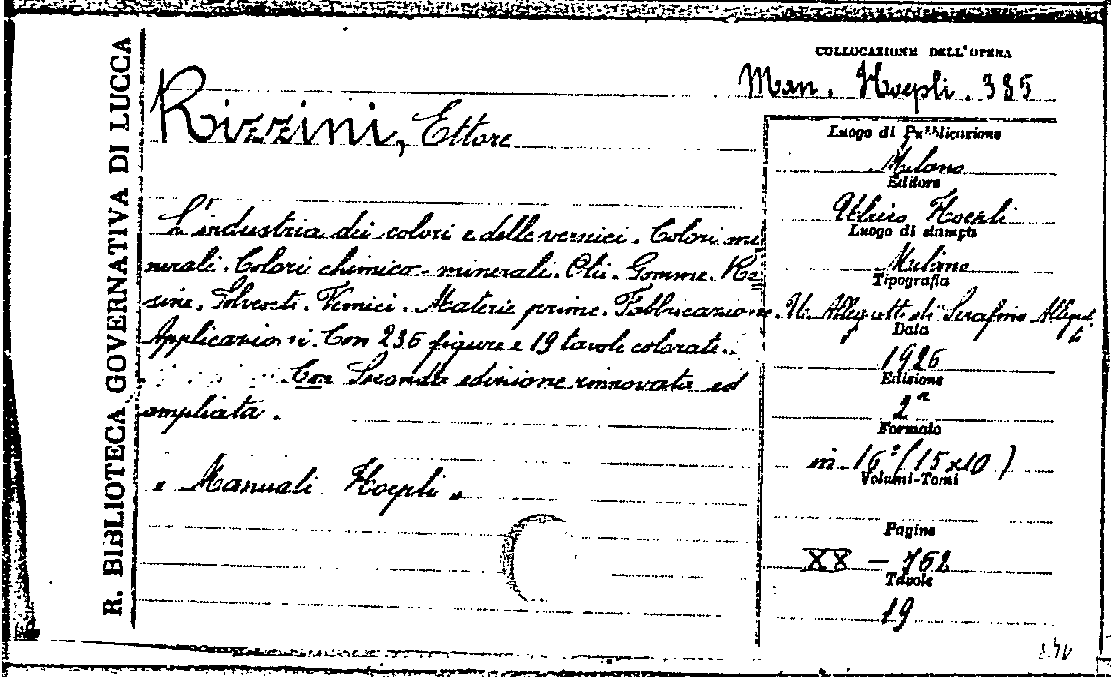 R. BIBLIOTECA GOVERNATIVA DI LUCCA
COLLOCAZIONE DELL'OPERA
Man. Hoepli. 385
Rizzini, Ettore
L'industria dei colori e delle vernici. Colori mi
nerali. Colori chimico-minerali. Olii. Gomme. Re
sine. Solventi. Vernici. Materie prime. Fabbricazione.
Applicazioni. Con 236 figure e 19 tavole colorate.
Con Seconda edizione rinnovata ed
ampliata.
"Manuali Hoepli"
Luogo di Pubblicazione
Milano
Editore
Ulrico Hoepli
Luogo di stampa
Milano
Tipografia
U. Allegretti di Serafino Allegret
ti
Data
1926
Edizione
2ª
Formato
in 16° (15x10)
Volumi-Tomi
Pagine
XX - 762
Tavole
19